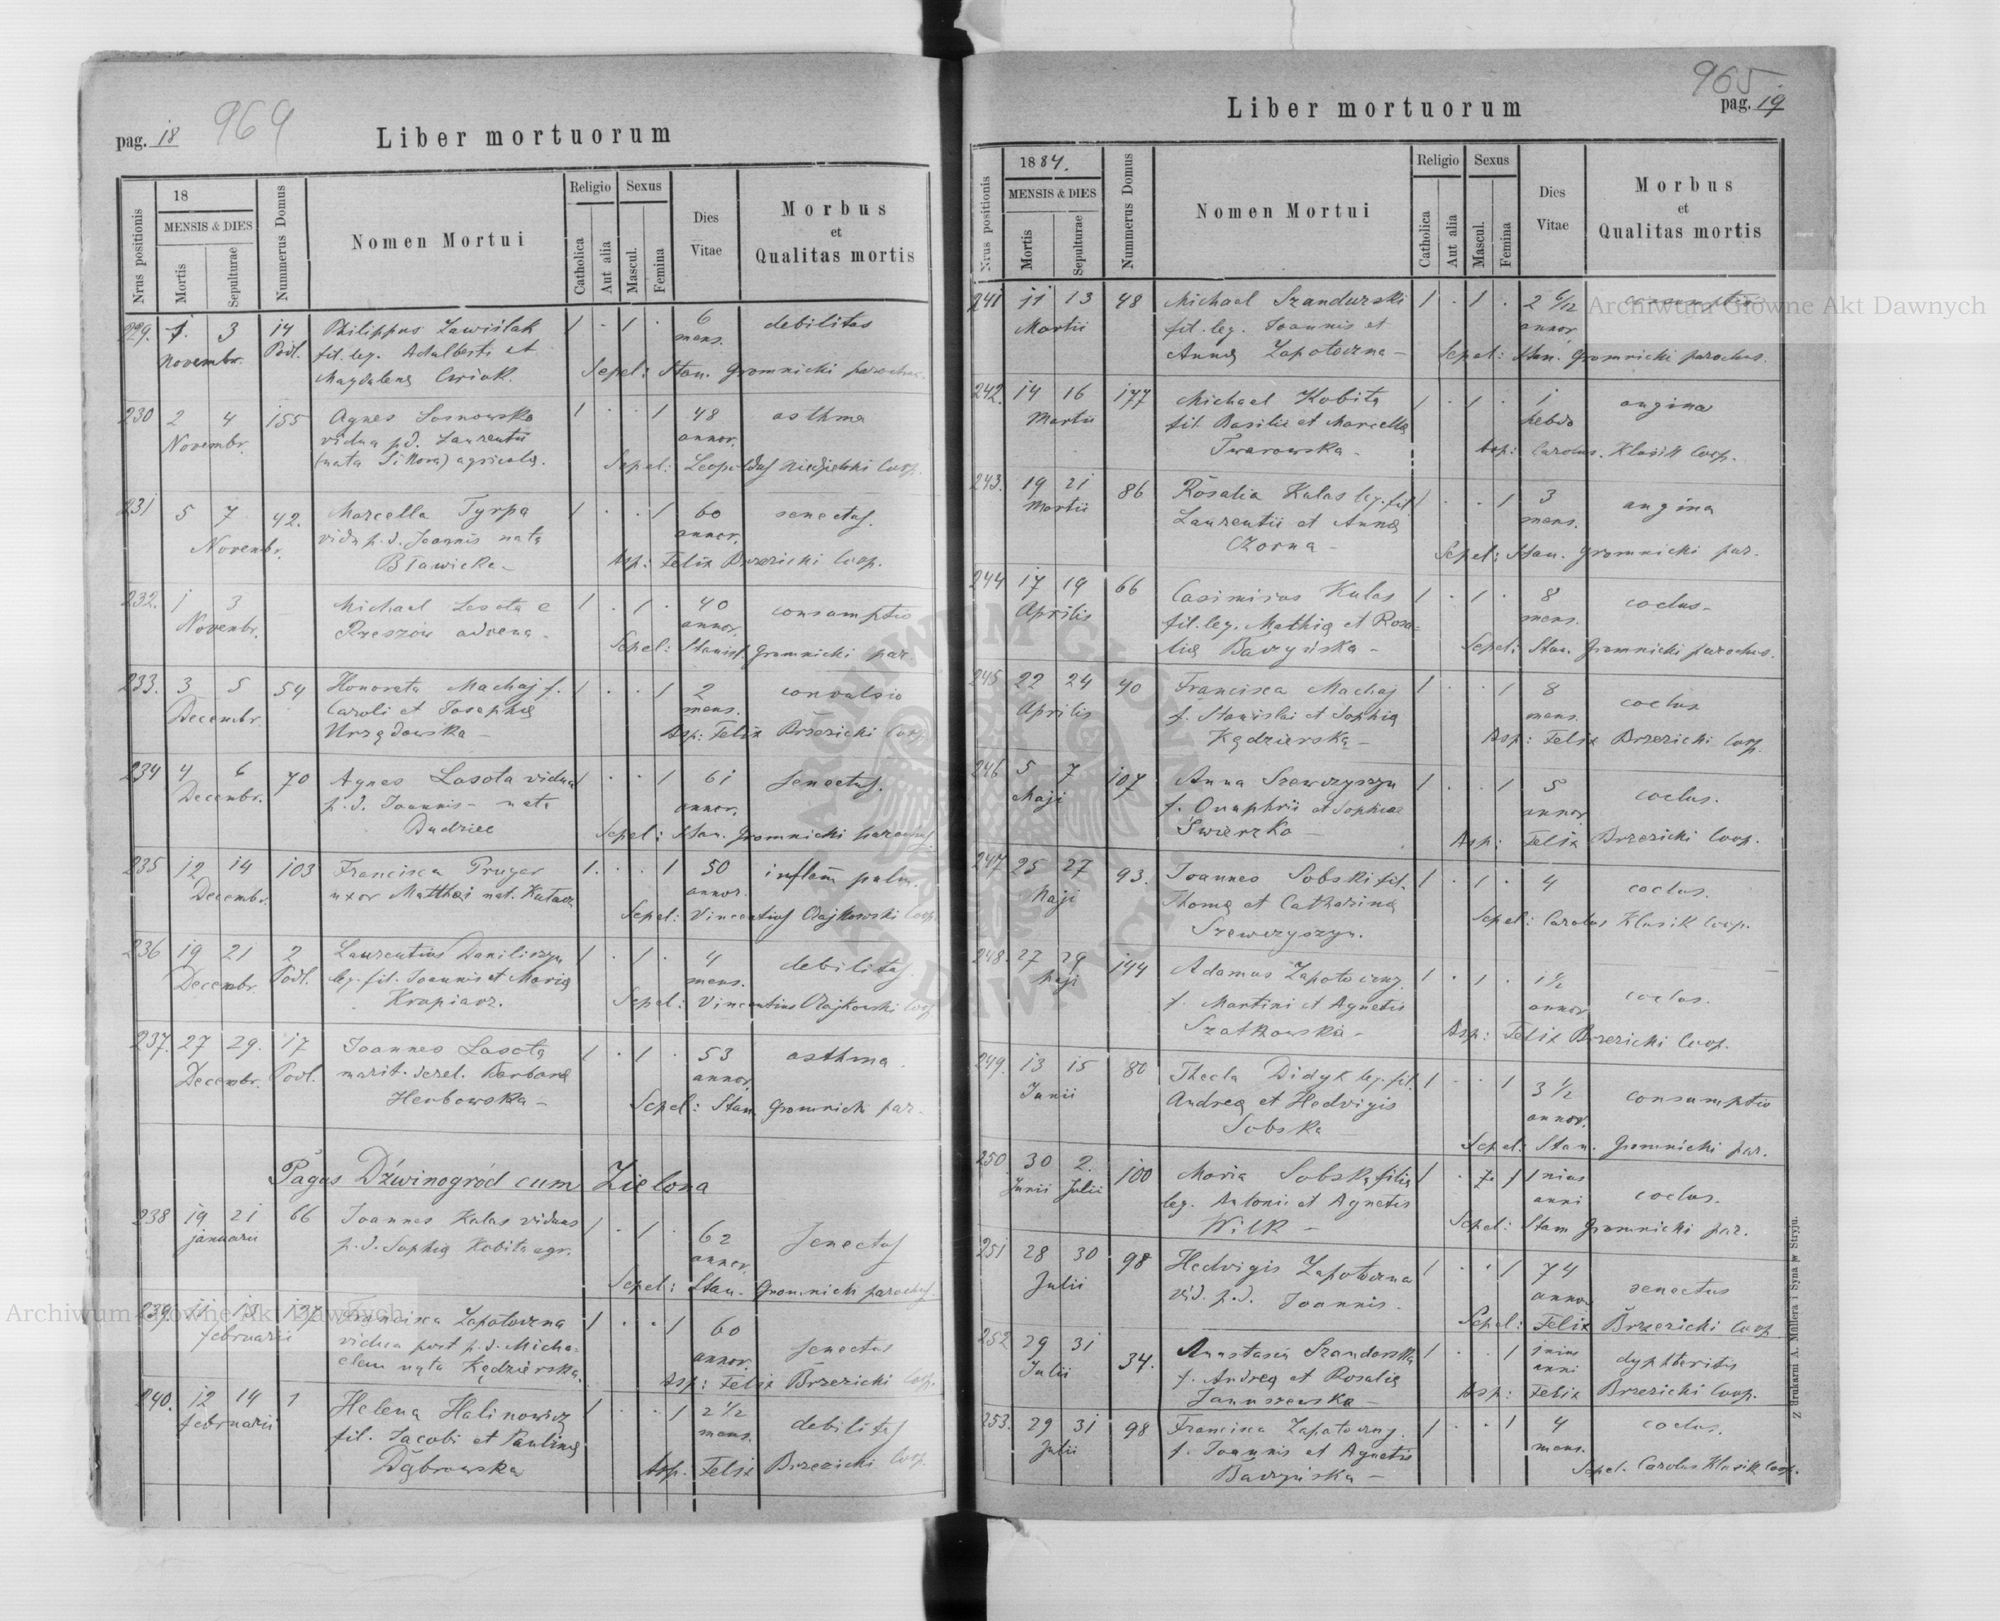 964
pag. 18
Liber mortuorum
Nrus positionis
18
MENSIS & DIES
Mortis
Sepulturae
Nummerus Domus
Nomen Mortui
Religio
Catholica
Aut alia
Sexus
Mascul.
Femina
Dies Vitae
Morbus et Qualitas mortis
229. 1. 3 14 Philippus Zawiślak 1 . 1 . 6 debilitas
Novembr. Podl. fil. leg. Adalberti et mens.
Magdalena Sepel: Stan. Gromnicki parochus.
230 2 4 155 Agnes Sosnowska 1 . . 1 48 asthma
Novembr. vidua p.d. Laurentii annor.
(nata Sikora) agricola. Sepel: Leopoldus Niedzielski Coop.
231 5 7 42. Marcella Tyrpa 1 . . 1 60 senectus.
Novembr. vidu p.d. Joannis nata annor.
Bławicka Asp: Felix Brzezicki Coop.
232. 1 3 Michael Lasota e 1 . 1 . 40 consumptio
Novembr. Rzeszów advena annor.
Sepel: Stanisl. Gromnicki par.
233. 3 5 54 Honorata Machaj f. 1 . . 1 2 convulsio
Decembr. Caroli et Josepha mens.
Urządowska Asp: Felix Brzezicki Coop.
234 4 6 70 Agnes Lasota vidua 1 . . 1 61 senectus.
Decembr. p.d. Joannis nata annor.
Dudziec Sepel: Stan. Gromnicki parochus
235 12 14 103 Francisca Pruger 1 . . 1 50 inflam pulm.
Decembr. uxor Matthaei nat. annor.
Sepel: Vincentius Czajkowski Coop.
236 19 21 2 Laurentius Daniliszyn 1 . 1 . 4 debilitas.
Decembr. Podl. leg. fil. Joannis et Maria mens.
Krupiarz. Sepel: Vincentius Czajkowski Coop
237. 27 29. 17 Joannes Lasota 1 . 1 . 53 asthma
Decembr. Podl. marit. derel. Barbara annor.
Herbowska Sepel: Stan Gromnicki par.
Pagus Dźwinogród cum Zielona
238 19 21 66 Joannes Kulas viduus 1 . 1 . 62 senectus
januarii p.d. Sophia Kobita agr. annor.
Sepel: Stan. Gromnicki parochus.
239. 11 13 127 Francisca Zapotoczna 1 . . 1 60 senectus
februarii vidua post p.d. Micha- annor.
elem nata Kędzierska. Asp: Felix Brzezicki Coop.
240. 12 14 1 Helena Halinowicz 1 . . 1 2 1/2 debilitas
februarii fil. Jacobi et Paulina mens.
Dąbrowska Asp. Felix Brzezicki Coop
965
pag. 19
Liber mortuorum
Nrus positionis
1884.
MENSIS & DIES
Mortis
Sepulturae
Nummerus Domus
Nomen Mortui
Religio
Catholica
Aut alia
Sexus
Mascul.
Femina
Dies Vitae
Morbus et Qualitas mortis
241 11 13 48 Michael Szandurski 1 . 1 . 2 6/12 consumptio
Martii fil. leg. Joannis et annor
Anna Zapotoczna Sepel: Stan. Gromnicki parochus.
242. 14 16 177 Michael Kobita 1 . 1 . 1 angina
Martii fil. Basilii et Marcella hebdo
Twarowska Asp: Carolus Klasik Coop.
243. 19 21 86 Rosalia Kulas leg. fil 1 . . 1 3 angina
Martii Laurentii et Anna mens.
Czorna Sepel: Stan. Gromnicki par.
244 17 19 66 Casimirus Kulas 1 . 1 . 8 coclus
Aprilis fil. leg. Mathia et Rosa- mens.
lia Baczyńska Sepel: Stan. Gromnicki parochus.
245 22 24 40 Francisca Machaj 1 . . 1 8 coclus
Aprilis f. Stanislai et Sophia mens.
Kędzierska Asp: Felix Brzezicki Coop.
246 5 7 107 Anna Szewczyszyn 1 . . 1 5 coclus.
Maji f. Onuphrii et Sophiae annor
Świerzko Asp: Felix Brzezicki Coop.
247 25 27 93. Joannes Sobski fil. 1 . 1 . 4 coclus.
Maji Thoma et Catharina
Szewczyszyn. Sepel: Carolus Klasik Coop.
248. 27 29 144 Adamus Zapotoczny 1 . 1 . 1 1/2 coclus.
Maji f. Martini et Agnetis annor
Szatkowska Asp: Felix Brzezicki Coop.
249. 13 15 80 Thecla Didyk leg. fil. 1 . . 1 3 1/2 consumptio
Junii Andrea et Hedvigis annor.
Sobska Sepel: Stan. Gromnicki par.
250 30 2. 100 Maria Sobska filia 1 . 1 1 nius coclus.
Junii Julii leg. Antonii et Agnetis anni
Wilk Sepel: Stan Gromnicki par.
251 28 30 98 Hedvigis Zapotoczna 1 . . 1 74 senectus
Julii vid. p.d. Joannis. annor
Sepel: Felix Brzezicki Coop
252 29 31 34. Anastasia Szandurska 1 . . 1 1 nius dyphteritis
Julii f. Andrea et Rosalia anni
Januszewska Asp: Felix Brzezicki Coop.
253. 29 31 98 Francisca Zapotoczny 1 . . 1 4 coclus.
Julii f. Joannis et Agnetis mens.
Baczyńska Sepel. Carolus Klasik Coop.
Z drukarni A. Müllera i Syna w Stryju.
Archiwum Główne Akt Dawnych
Archiwum Główne Akt Dawnych
ARCHIWUM GŁÓWNE AKT DAWNYCH